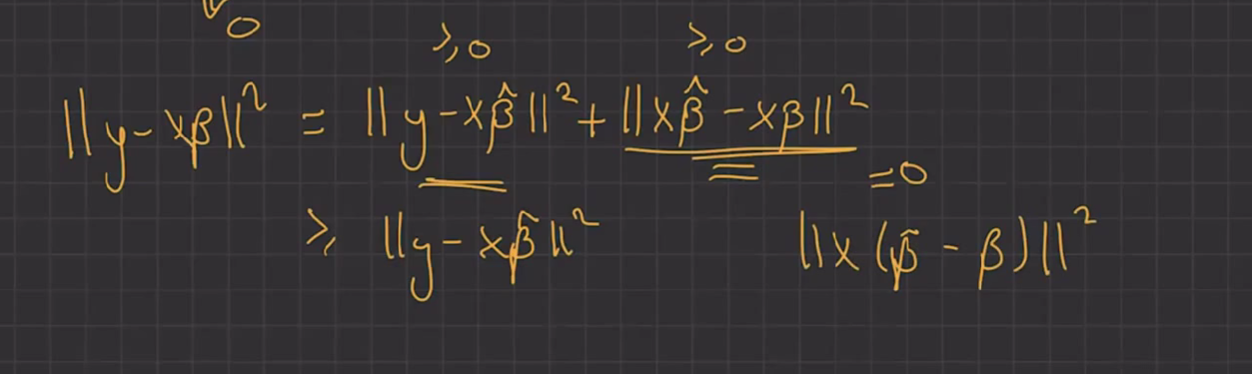 0
≥0 ≥0
||y-xβ||² = ||y-xβ̂||² + ||xβ̂ - xβ||²
=0
≥ ||y-xβ̂||² ||x(β̂ - β)||²